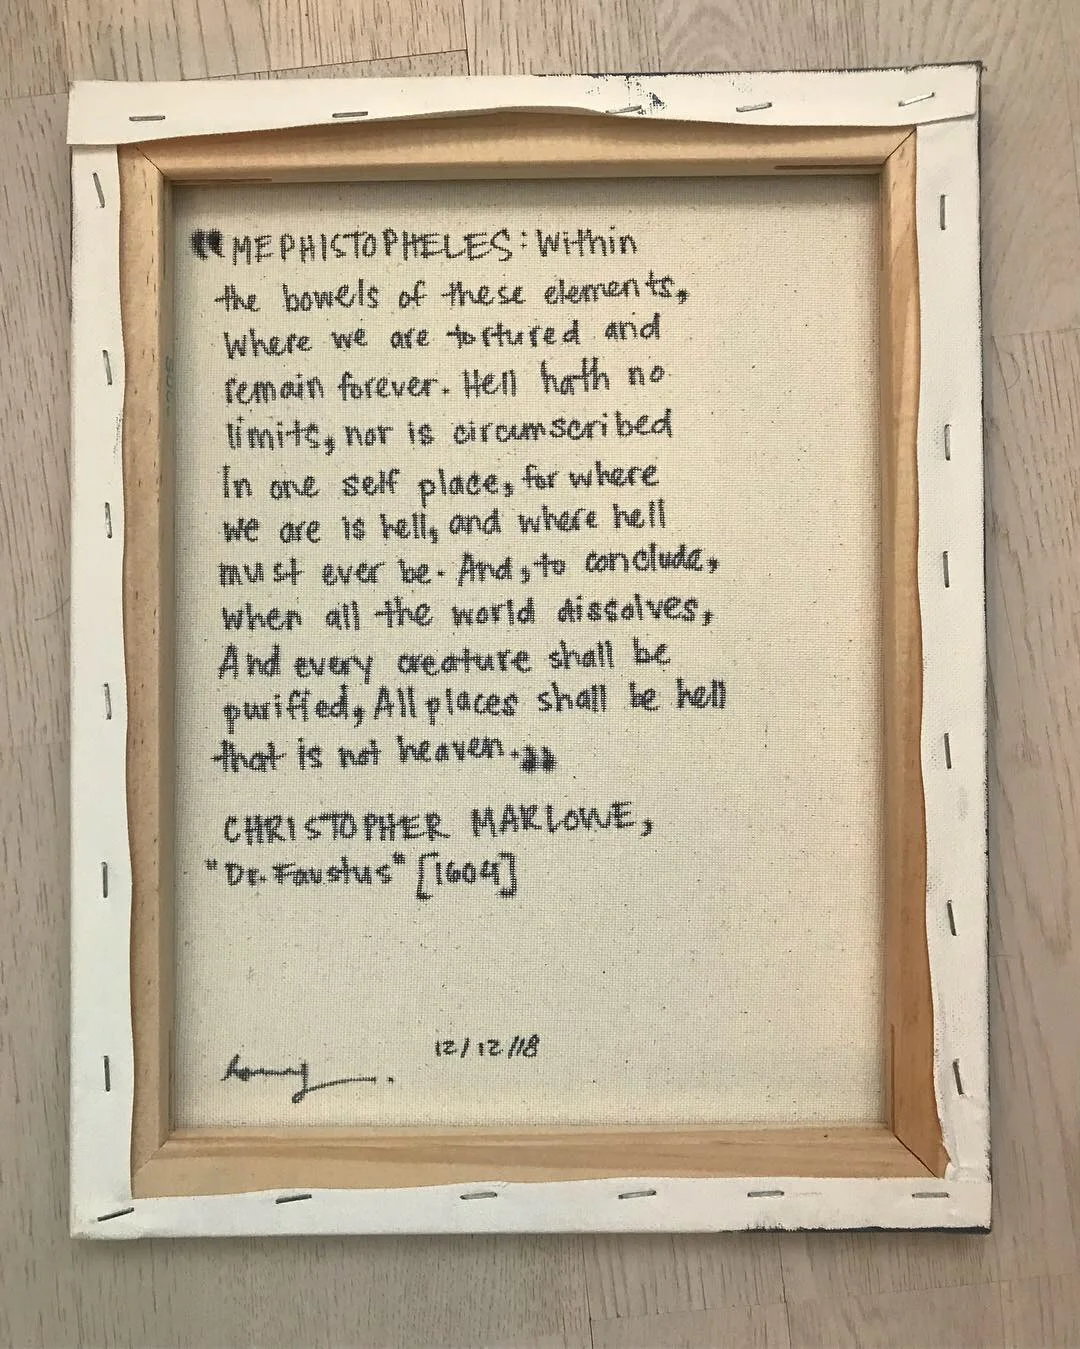 “MEPHISTOPHELES: Within
the bowels of these elements,
Where we are tortured and
remain forever. Hell hath no
limits, nor is circumscribed
In one self place, for where
we are is hell, and where hell
must ever be. And, to conclude,
when all the world dissolves,
And every creature shall be
purified, All places shall be hell
that is not heaven.”
CHRISTOPHER MARLOWE,
"Dr. Faustus" [1604]
12/12/18